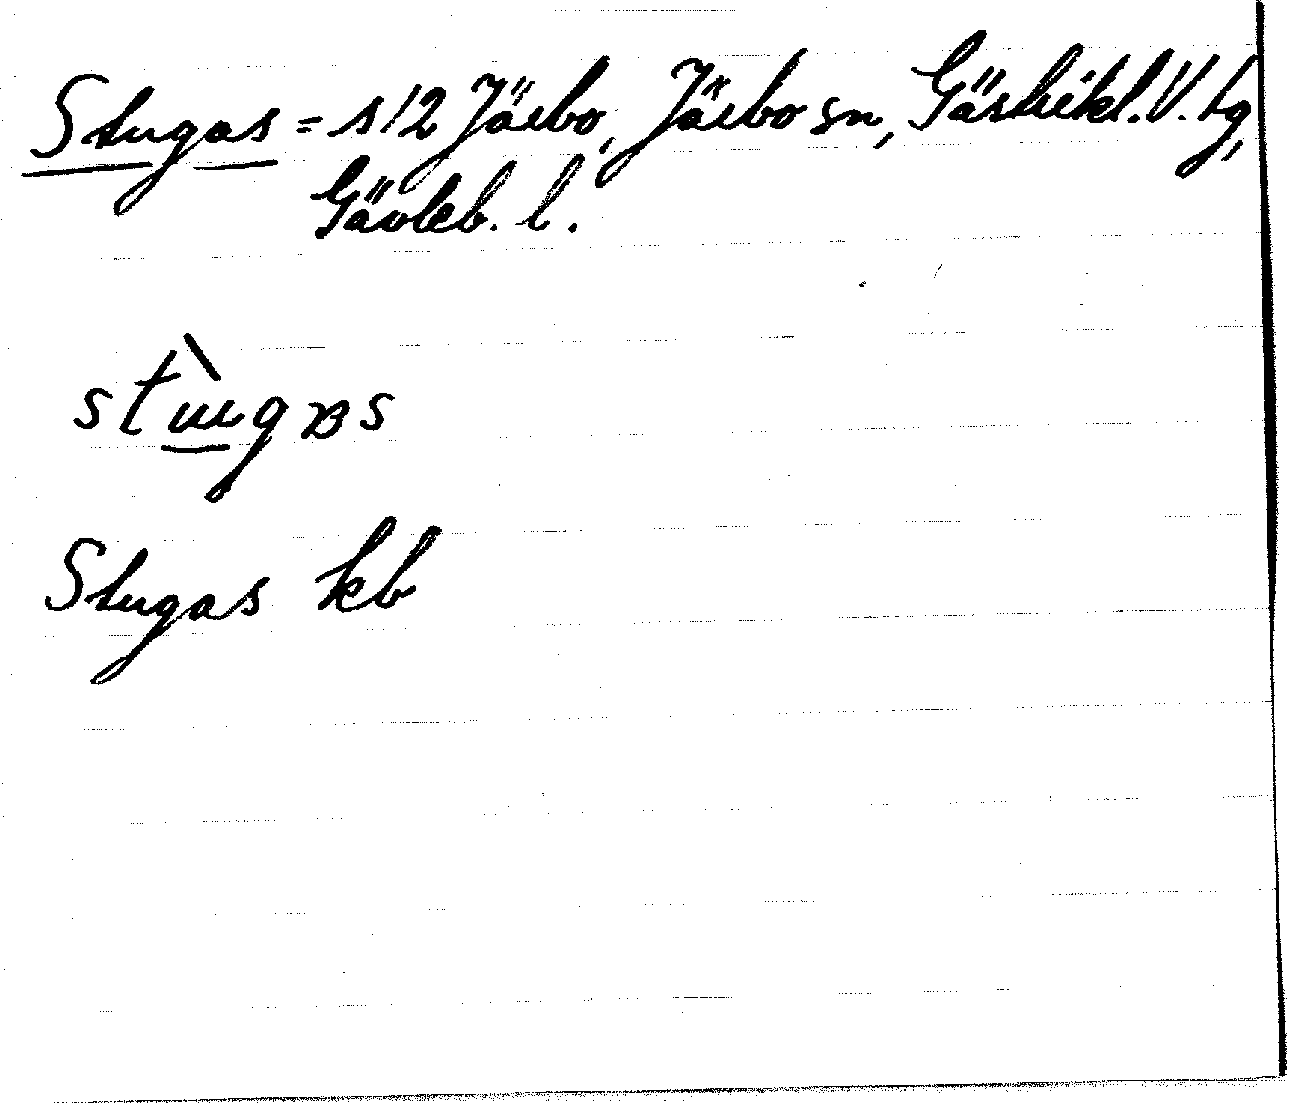 Stugas = s12 Järbo, Järbo sn, Gästrikl. V. tg,
Gävleb. l.
Stugas kb